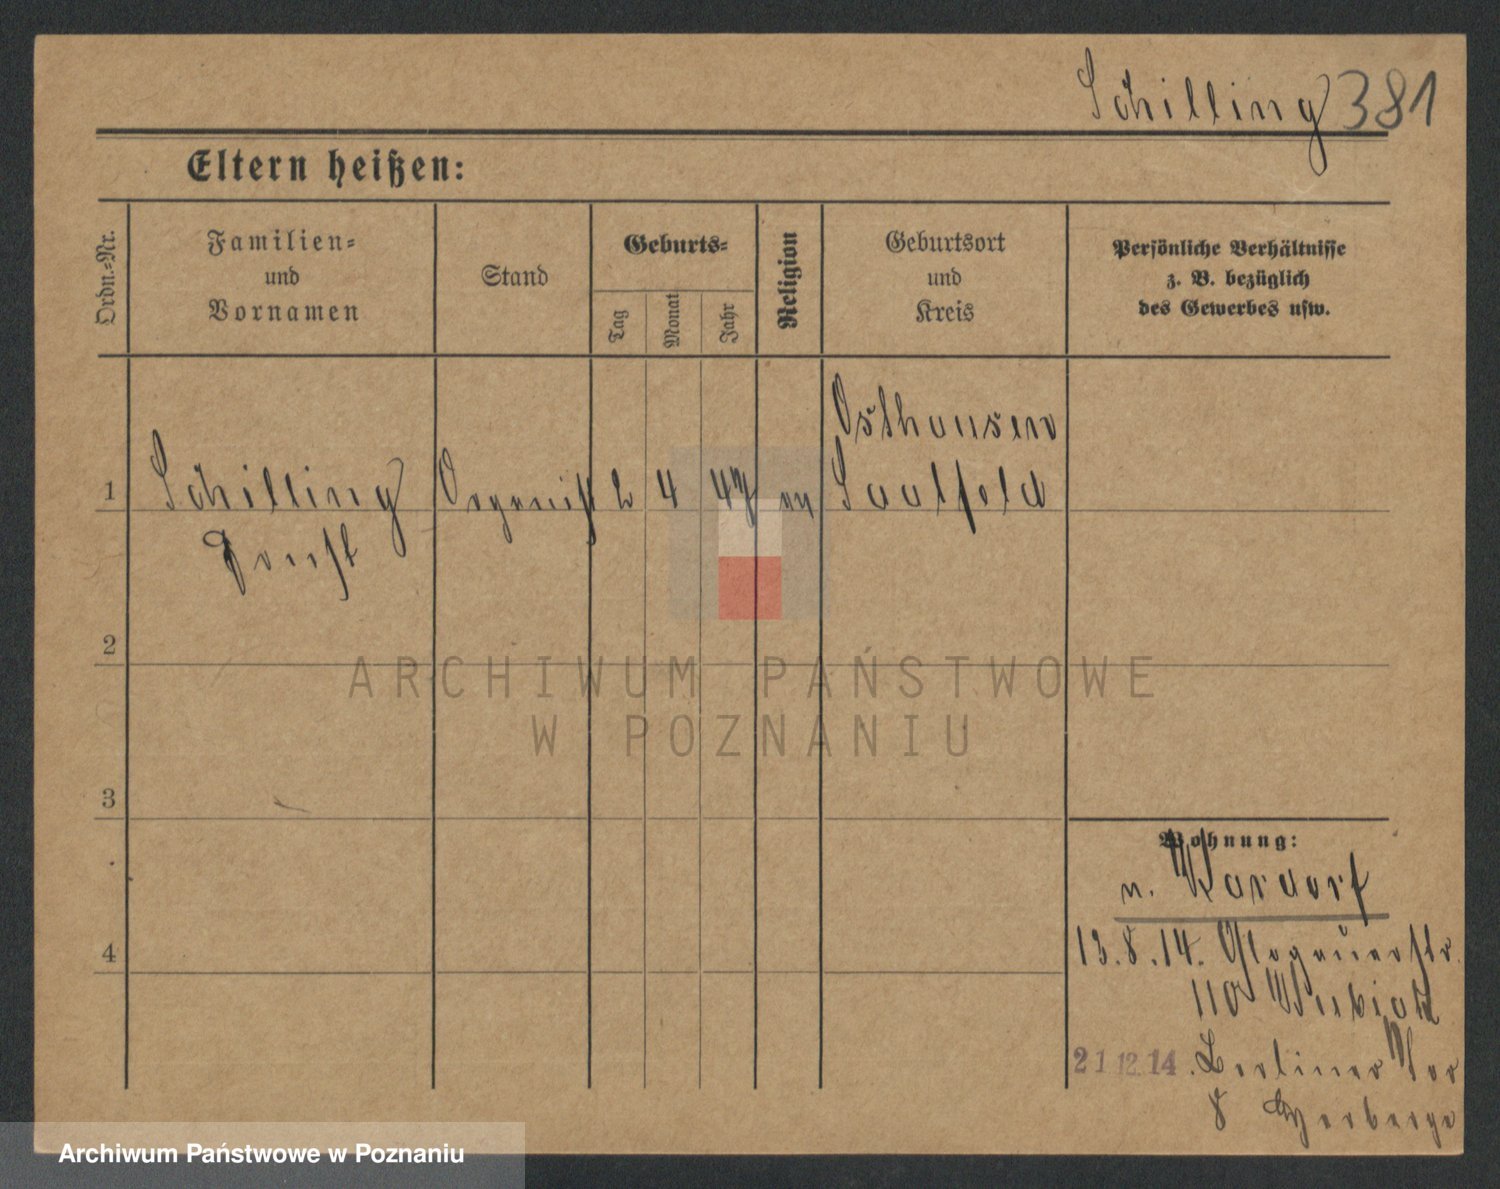 Schilling 381
Eltern heißen:
Ordn.=Nr.
Familien=
und
Vornamen
Stand
Geburts=
Tag
Monat
Jahr
Religion
Geburtsort
und
Kreis
Persönliche Verhältnisse
z. B. bezüglich
des Gewerbes usw.
Osthausen
1 Schilling Organist 2 4 47 ev Saalfeld
Ernst
2
3
4
Wohnung:
n.
13.8.14. Glogauerstr.
110
21 12. 14. Berliner Tor
8 Herberge
ARCHIWUM PAŃSTWOWE
W POZNANIU
Archiwum Państwowe w Poznaniu